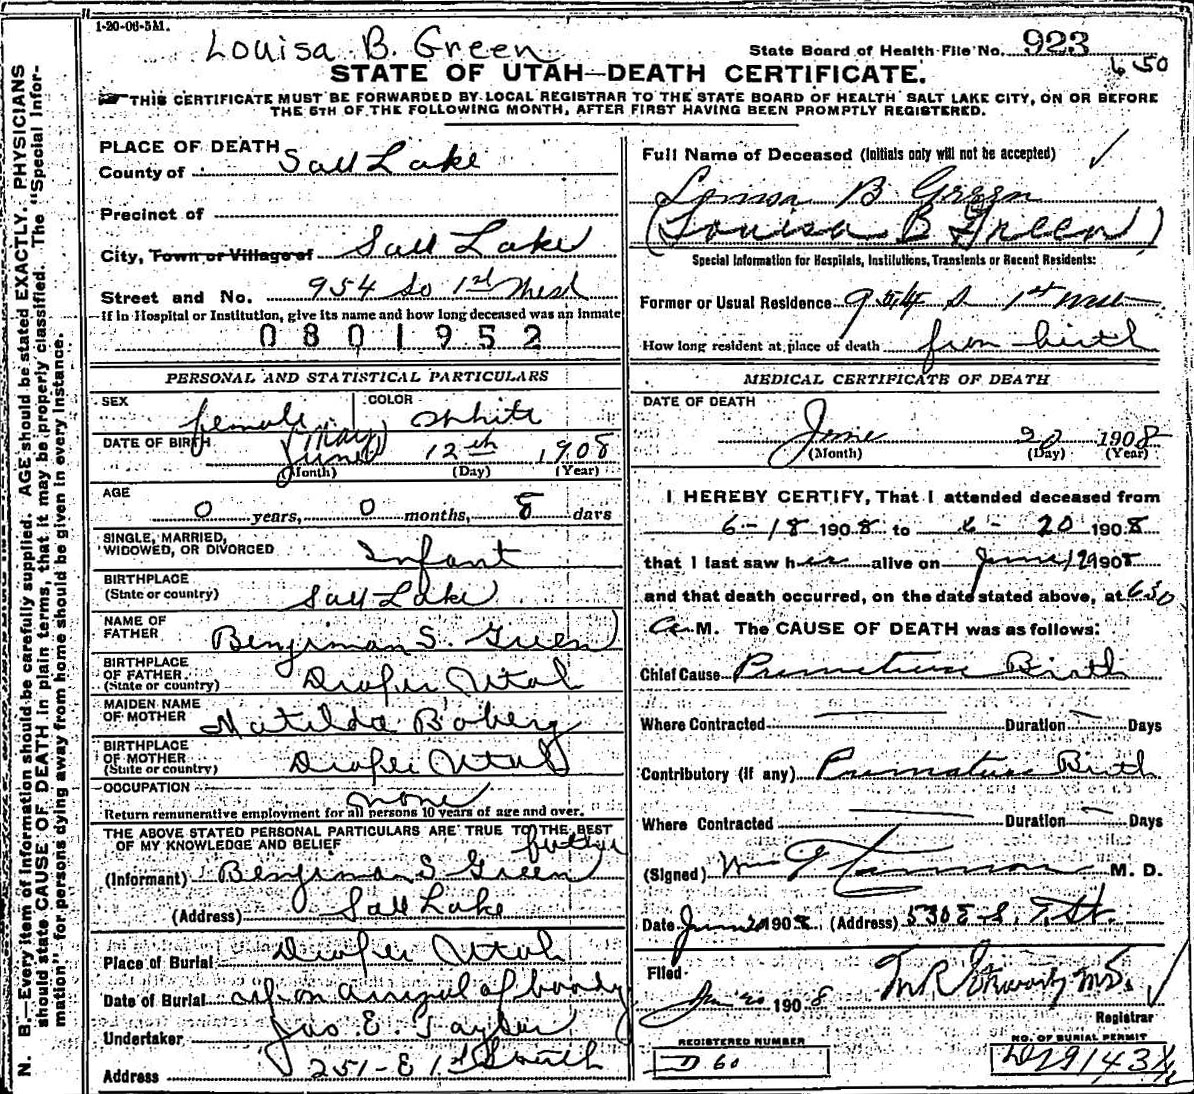 1-20-06-5M.
Louisa B. Green
State Board of Health File No. 923
6 50
STATE OF UTAH—DEATH CERTIFICATE.
THIS CERTIFICATE MUST BE FORWARDED BY LOCAL REGISTRAR TO THE STATE BOARD OF HEALTH SALT LAKE CITY, ON OR BEFORE
THE 5TH OF THE FOLLOWING MONTH, AFTER FIRST HAVING BEEN PROMPTLY REGISTERED.
N. B.—Every item of information should be carefully supplied. AGE should be stated EXACTLY. PHYSICIANS
should state CAUSE OF DEATH in plain terms, that it may be properly classified. The "Special Infor-
mation" for persons dying away from home should be given in every instance.
PLACE OF DEATH
County of Salt Lake
Precinct of
City, Town or Village of Salt Lake
Street and No. 954 So 1st West
If in Hospital or Institution, give its name and how long deceased was an inmate
0801952
PERSONAL AND STATISTICAL PARTICULARS
SEX female COLOR White
DATE OF BIRTH (May) June 12th 1908
(Month) (Day) (Year)
AGE
0 years, 0 months, 8 days
SINGLE, MARRIED,
WIDOWED, OR DIVORCED Infant
BIRTHPLACE
(State or country) Salt Lake
NAME OF
FATHER Benjiman S. Green
BIRTHPLACE
OF FATHER
(State or country) Draper Utah
MAIDEN NAME
OF MOTHER Matilda Boberg
BIRTHPLACE
OF MOTHER
(State or country) Draper Utah
OCCUPATION none
Return remunerative employment for all persons 10 years of age and over.
THE ABOVE STATED PERSONAL PARTICULARS ARE TRUE TO THE BEST
OF MY KNOWLEDGE AND BELIEF father
(Informant) Benjiman S Green
(Address) Salt Lake
Place of Burial Draper Utah
Date of Burial on arrival of body
Undertaker Jos E. Taylor
Address 251-E 1st South
Full Name of Deceased (Initials only will not be accepted)
Louisa B Green
(Louisa B Green)
Special Information for Hospitals, Institutions, Transients or Recent Residents:
Former or Usual Residence 954 S 1st West
How long resident at place of death from birth
MEDICAL CERTIFICATE OF DEATH
DATE OF DEATH
June 20 1908
(Month) (Day) (Year)
I HEREBY CERTIFY, That I attended deceased from
6-18 1908 to 6-20 1908
that I last saw her alive on June 19 1908
and that death occurred, on the date stated above, at 650
a M. The CAUSE OF DEATH was as follows:
Chief Cause Premature Birth
Where Contracted Duration Days
Contributory (if any) Premature Birth
Where Contracted Duration Days
(Signed) M. D.
Date June 20 1908 (Address) 530 E S. T. St.
Filed
Jun 20 1908
Registrar
REGISTERED NUMBER
D 60
NO. OF BURIAL PERMIT